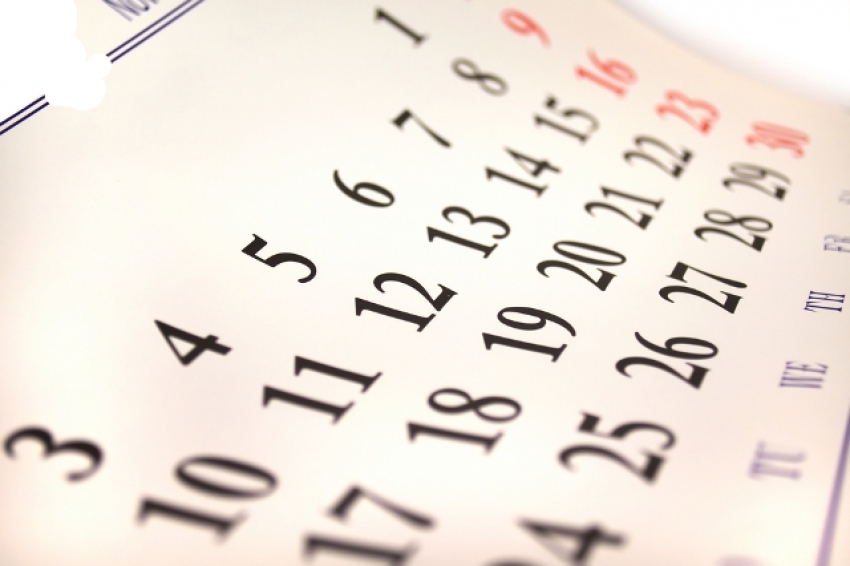 NOV
1
3 4 5 6 7 8 9
10 11 12 13 14 15 16
17 18 19 20 21 22 23
24 25 26 27 28 29 30
TU WE TH FR